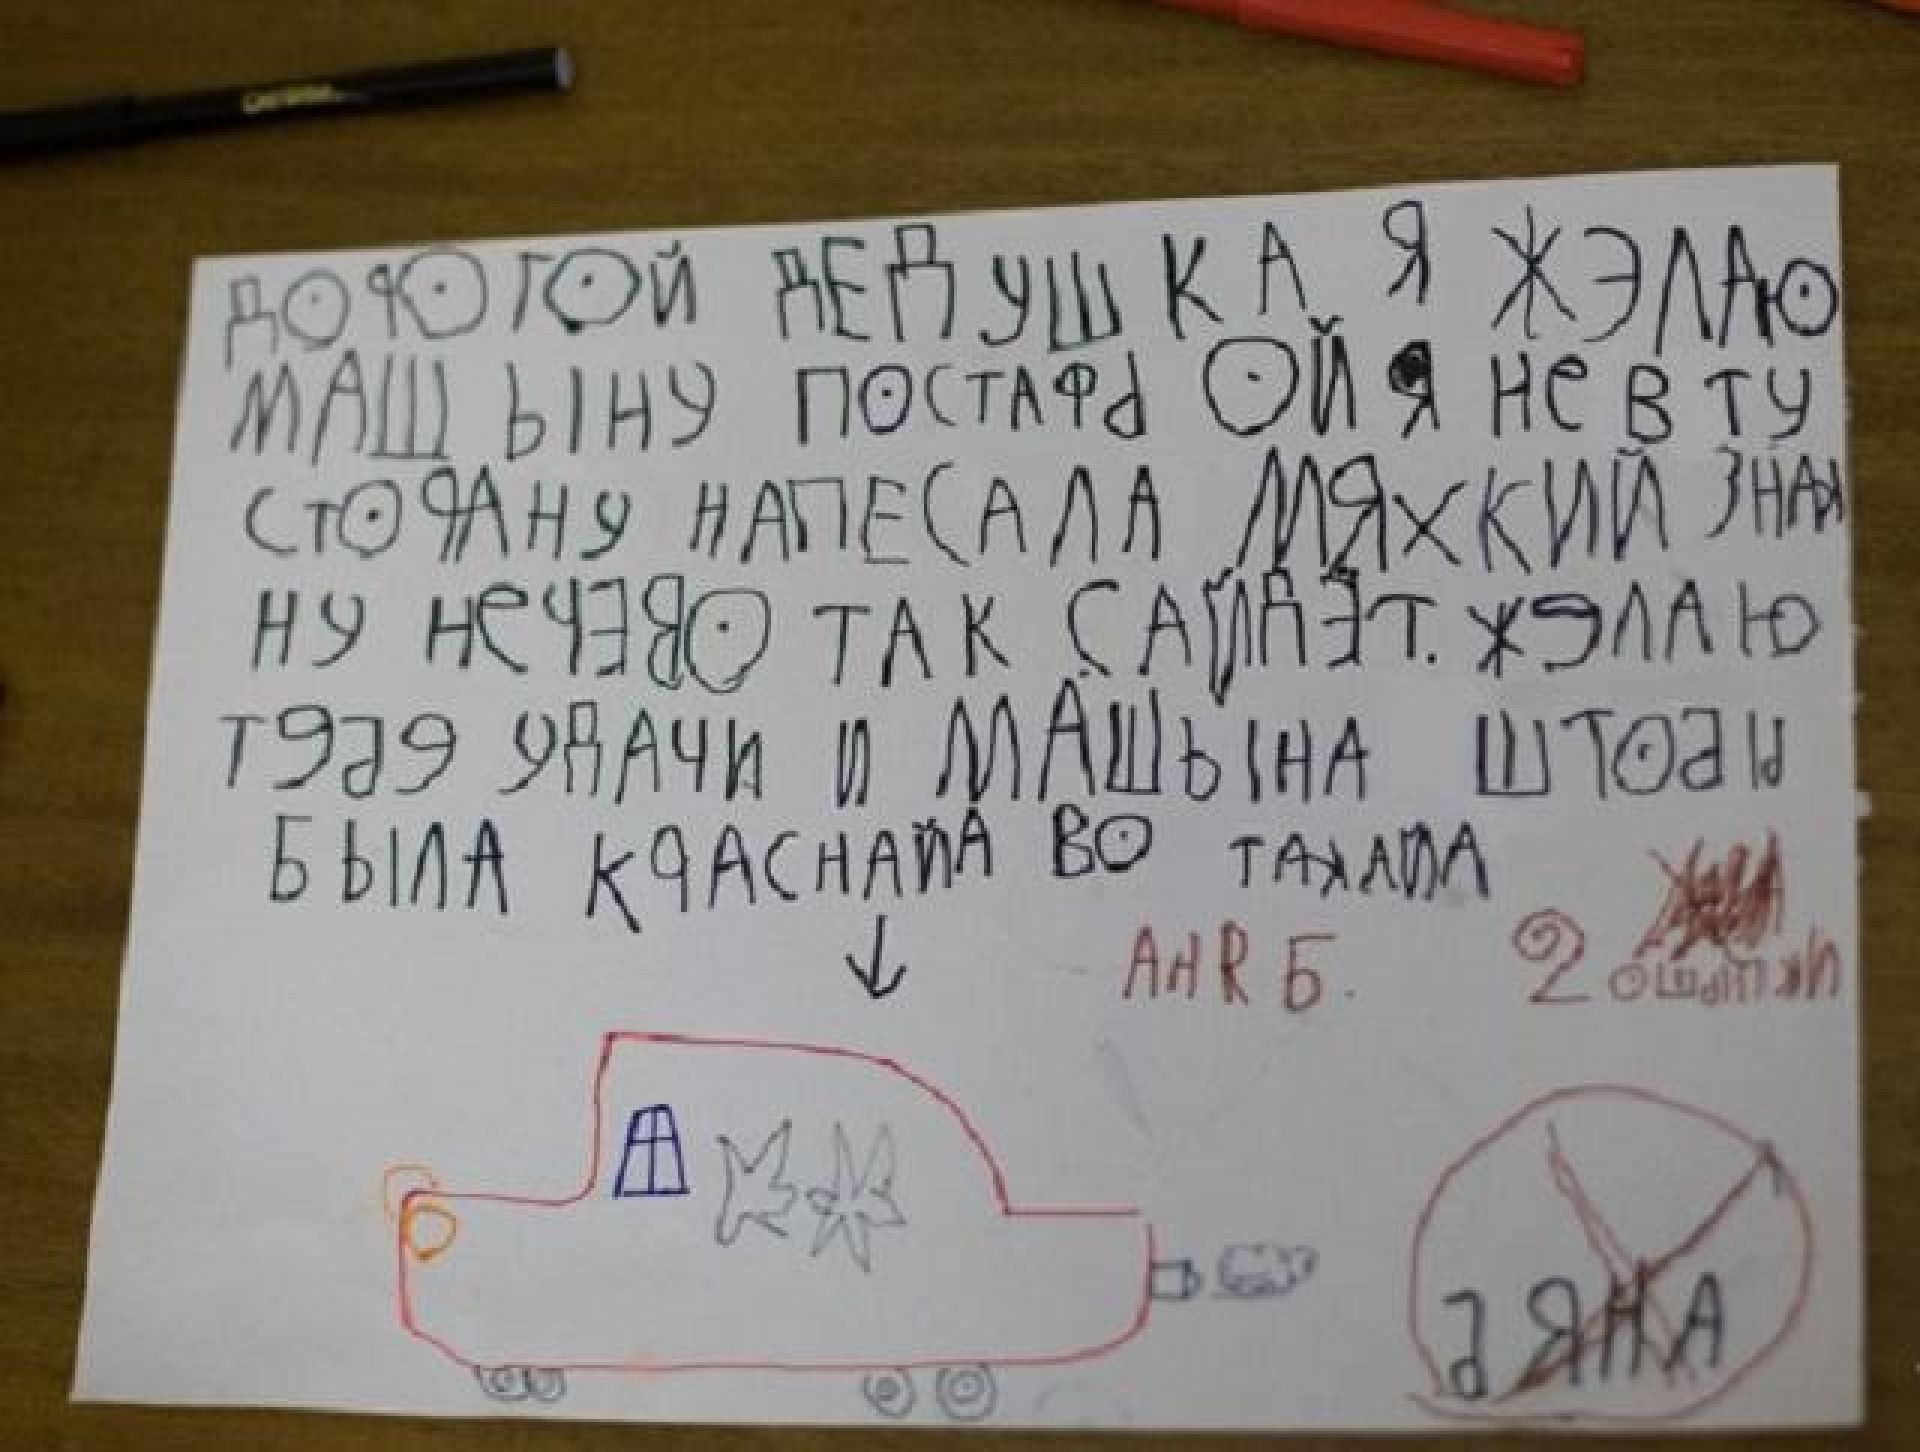 ДОРОГОЙ ДЕДУШКА Я ЖЭЛАЮ
МАШЫНУ ПОСТАФЬ ОЙ Я НЕ В ТУ
СТОРАНУ НАПЕСАЛА МЯХКИЙ ЗНАК
НУ НЕЧЕВО ТАК САЙДЁТ. ЖЭЛАЮ
ТЭБЕ УДАЧИ И МАШЫНА ШТОБЫ
БЫЛА КРАСНАЙА ВО ТАКАЙА
АНЯ Б.
2 ОШЫПКИ
БЯНА